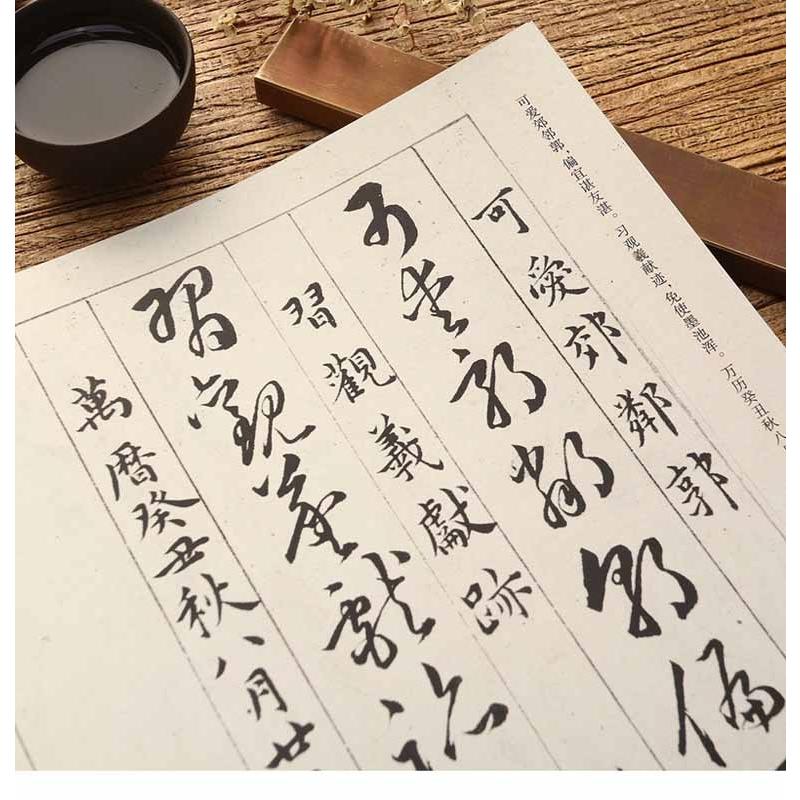 可爱郊邻郭，偏宜谌友湛。习观羲献迹，免使墨池浑。万历癸丑秋八
可愛郊鄰郭
可愛郊鄰郭偏
習觀羲獻跡
習觀羲獻跡
萬曆癸丑秋八月廿